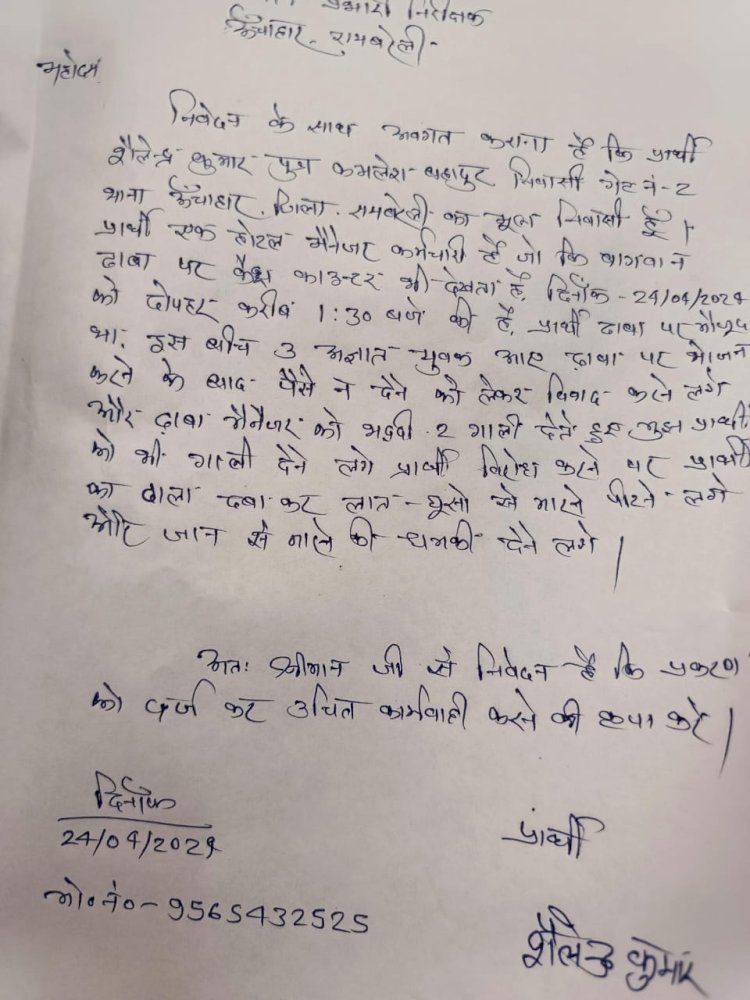 प्रभारी निरीक्षक
ऊँचाहार, रायबरेली-
महोदय
निवेदन के साथ अवगत कराना है कि प्रार्थी
शैलेन्द्र कुमार पुत्र कमलेश बहादुर निवासी गेट नं-2
थाना ऊँचाहार, जिला. रायबरेली का मूल निवासी हूँ।
प्रार्थी एक होटल मैनेजर कर्मचारी है जो कि बागवान
ढाबा पर कैश काउन्टर भी देखता है, दिनाँक-24/04/2024
को दोपहर करीब 1:30 बजे की है, प्रार्थी ढाबा पर मौजूद
था, इस बीच 3 अज्ञात युवक आए ढ़ाबा पर भोजन
करने के बाद पैसे न देने को लेकर विवाद करने लगे
और ढ़ाबा मैनेजर को भद्दी-2 गाली देते हुए मुझ प्रार्थी
को भी गाली देने लगे प्रार्थी विरोध करने पर प्रार्थी
का गला दबा कर लात-घूसो से मारने पीटने लगे
और जान से मारने की धमकी देने लगे।
अतः श्रीमान जी से निवेदन है कि प्रकरण
को दर्ज कर उचित कार्यवाही करने की कृपा करें।
दिनाँक
24/04/2024
प्रार्थी
मो०नं०-9565432525
शैलेन्द्र कुमार